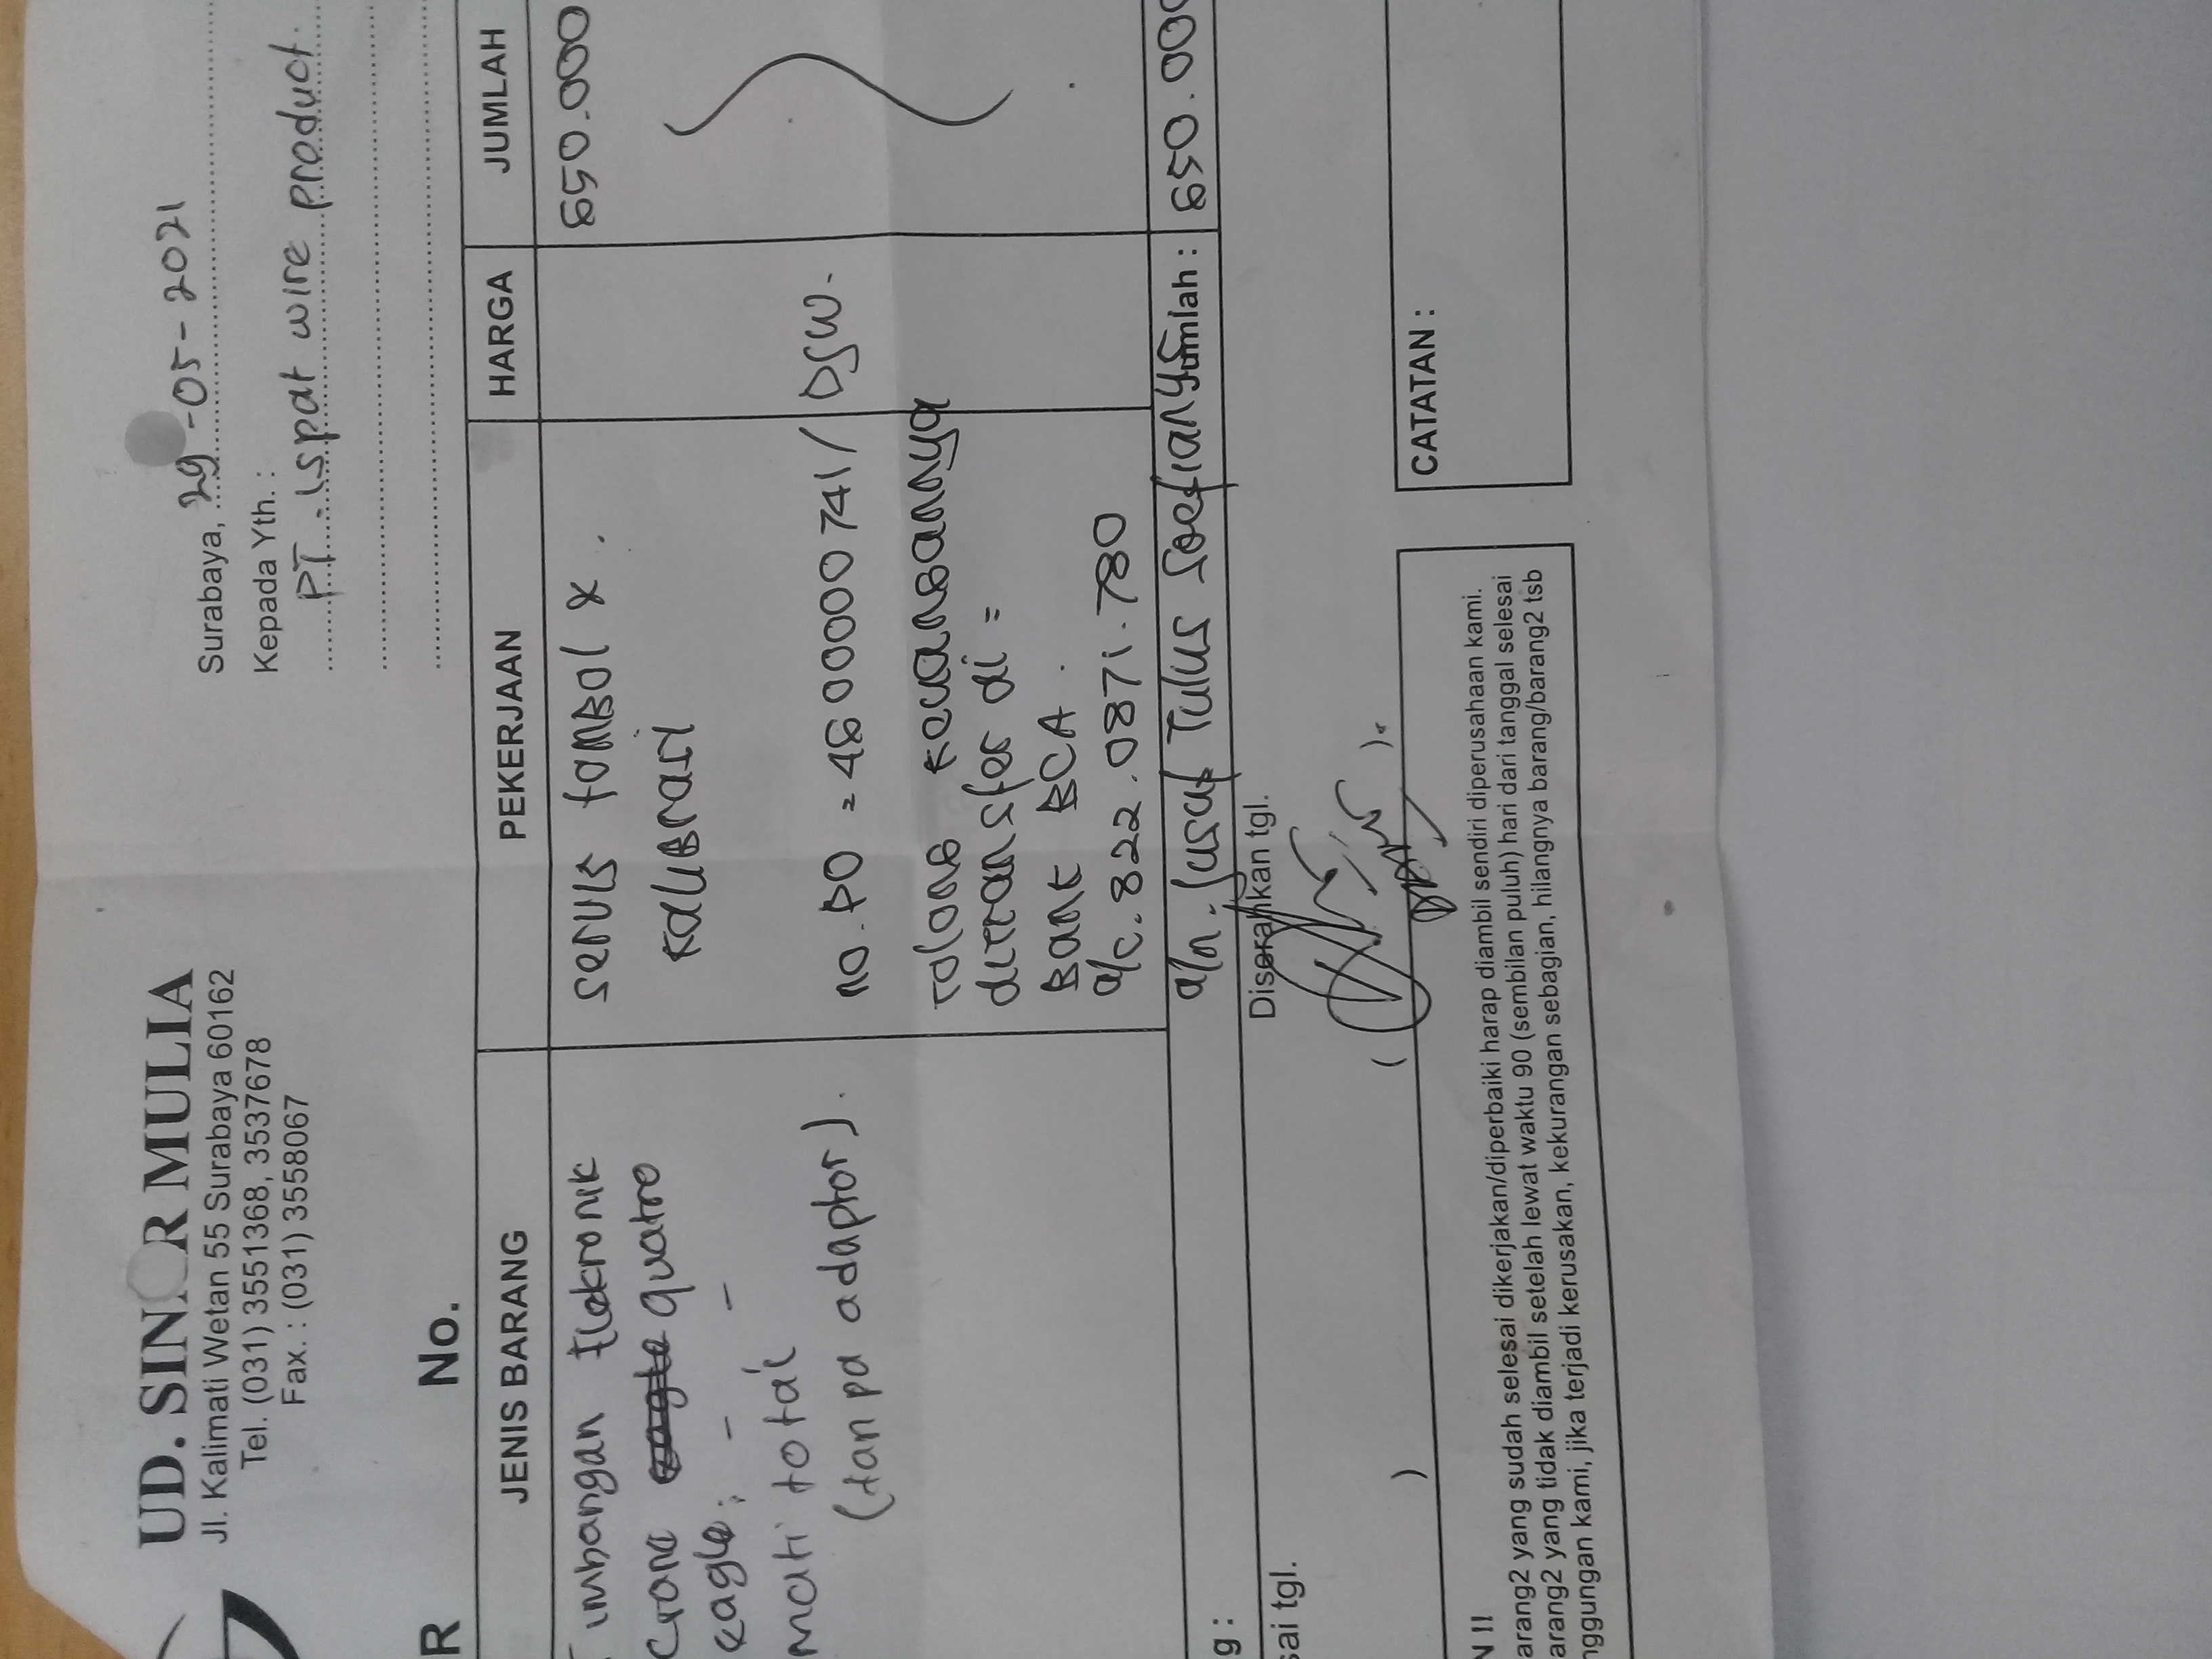 UD. SINAR MULIA
Jl. Kalimati Wetan 55 Surabaya 60162
Tel. (031) 3551368, 3537678
Fax. : (031) 3558067
Surabaya, 29-05-2021
Kepada Yth. :
PT. Ispat wire product.
R No.
JENIS BARANG PEKERJAAN HARGA JUMLAH
Timbangan Elektronik
Crane eagle quatro
eagle; - , -
mati total
(tanpa adaptor).
servis tombol &.
kalibrasi
no. PO = 4600000741/ DSW.
Tolong keuangannya
ditransfer di =
Bank BCA.
a/c. 822.0871.780
a/n. Jusuf Tulus
650.000
g : Jumlah : 650.000
sai tgl. Diserahkan tgl.
) ( ).
N !!
arang2 yang sudah selesai dikerjakan/diperbaiki harap diambil sendiri diperusahaan kami.
arang2 yang tidak diambil setelah lewat waktu 90 (sembilan puluh) hari dari tanggal selesai
nggungan kami, jika terjadi kerusakan, kekurangan sebagian, hilangnya barang/barang2 tsb
CATATAN :